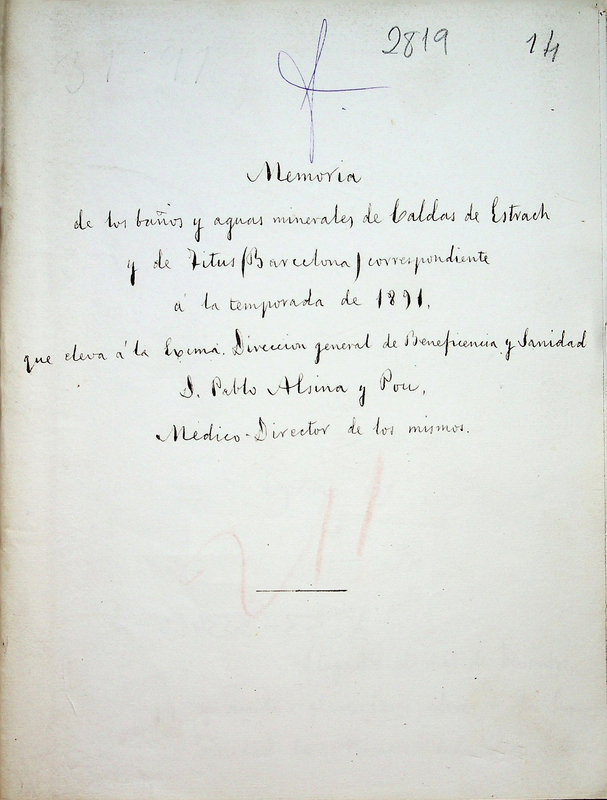 2819 14
Memoria
de los baños y aguas minerales de Caldas de Estrach
y de Titus (Barcelona) correspondiente
á la temporada de 1891,
que eleva á la Excma. Direccion general de Beneficencia y Sanidad
D. Pablo Alsina y Pou,
Médico-Director de los mismos.